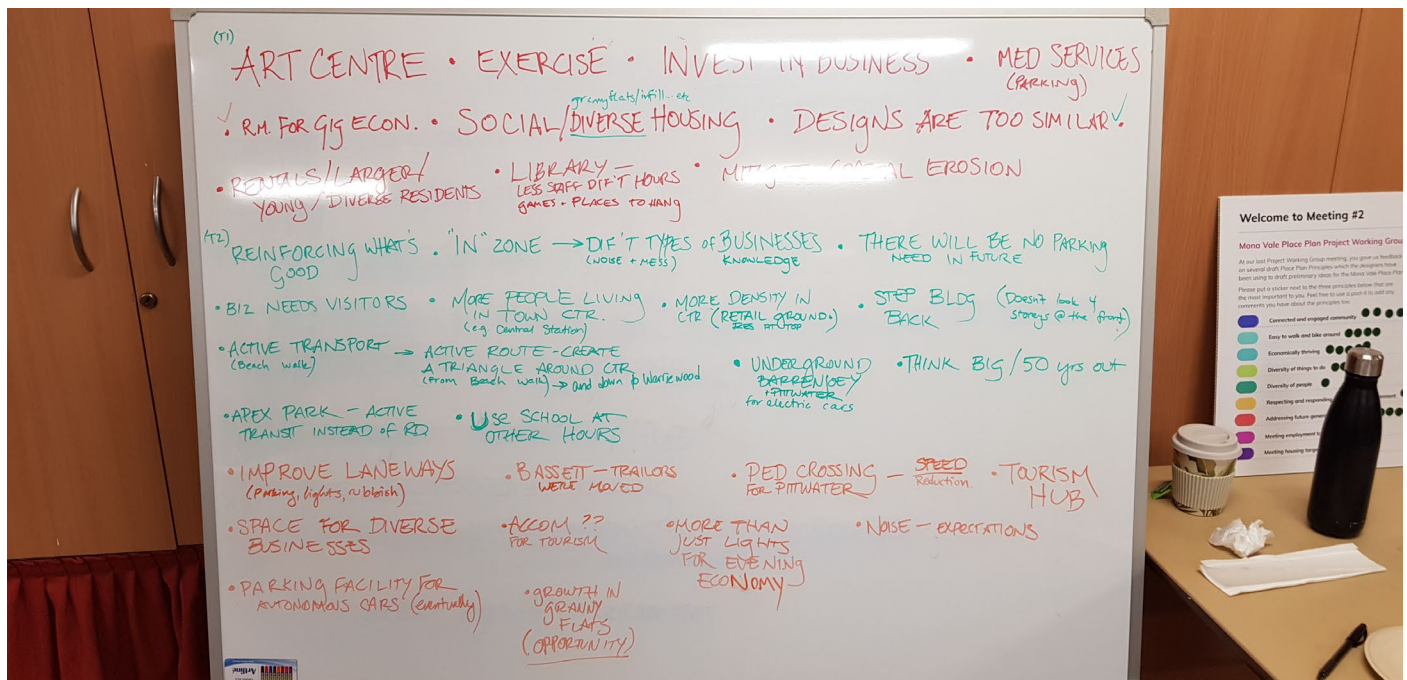 (T1)
ART CENTRE • EXERCISE • INVEST IN BUSINESS • MED SERVICES
(PARKING)
granny flats/infill... etc
• RM. FOR GIG ECON. • SOCIAL/DIVERSE HOUSING • DESIGNS ARE TOO SIMILAR •
• RENTALS/LARGER/
YOUNG/DIVERSE RESIDENTS
• LIBRARY —
LESS STAFF DIF'T HOURS
GAMES + PLACES TO HANG
• EROSION
(T2)
REINFORCING WHAT'S
GOOD
• "IN" ZONE → DIF'T TYPES of BUSINESSES
(NOISE + MESS) KNOWLEDGE
• THERE WILL BE NO PARKING
NEED IN FUTURE
• BIZ NEEDS VISITORS
• MORE PEOPLE LIVING
IN TOWN CTR.
(e.g. Central Station)
• MORE DENSITY IN
CTR (RETAIL GROUND.
RES AT TOP
• STEP BLDG
BACK
(Doesn't look 4
storeys @ the 'front')
• ACTIVE TRANSPORT →
(Beach walk)
ACTIVE ROUTE - CREATE
A TRIANGLE AROUND CTR
(from Beach walk) → and down to Warriewood
• UNDERGROUND
BARRENJOEY
+ PITTWATER
for electric cars
• THINK BIG/50 yrs out
• APEX PARK - ACTIVE
TRANSIT INSTEAD OF RD
• USE SCHOOL AT
OTHER HOURS
• IMPROVE LANEWAYS
(Parking, lights, rubbish)
• BASSETT - TRAILORS
WERE MOVED
• PED CROSSING — SPEED
FOR PITTWATER Reduction
• TOURISM
HUB
• SPACE FOR DIVERSE
BUSINESSES
• ACCOM ??
FOR TOURISM
• MORE THAN
JUST LIGHTS
FOR EVENING
ECONOMY
• NOISE - EXPECTATIONS
• PARKING FACILITY FOR
AUTONOMOUS CARS (eventually)
• GROWTH IN
GRANNY
FLATS
(OPPORTUNITY)
Artline
Welcome to Meeting #2
Mona Vale Place Plan Project Working Grou
At our last Project Working Group meeting, you gave us feedback
on several draft Place Plan Principles which the designers have
been using to draft preliminary ideas for the Mona Vale Place Plan
Please put a sticker next to the three principles below that are
the most important to you. Feel free to use a post-it to add any
comments you have about the principles too.
Connected and engaged community
Easy to walk and bike around
Economically thriving
Diversity of things to do
Diversity of people
Respecting and responding
Addressing future gener
Meeting employment
Meeting housing targe